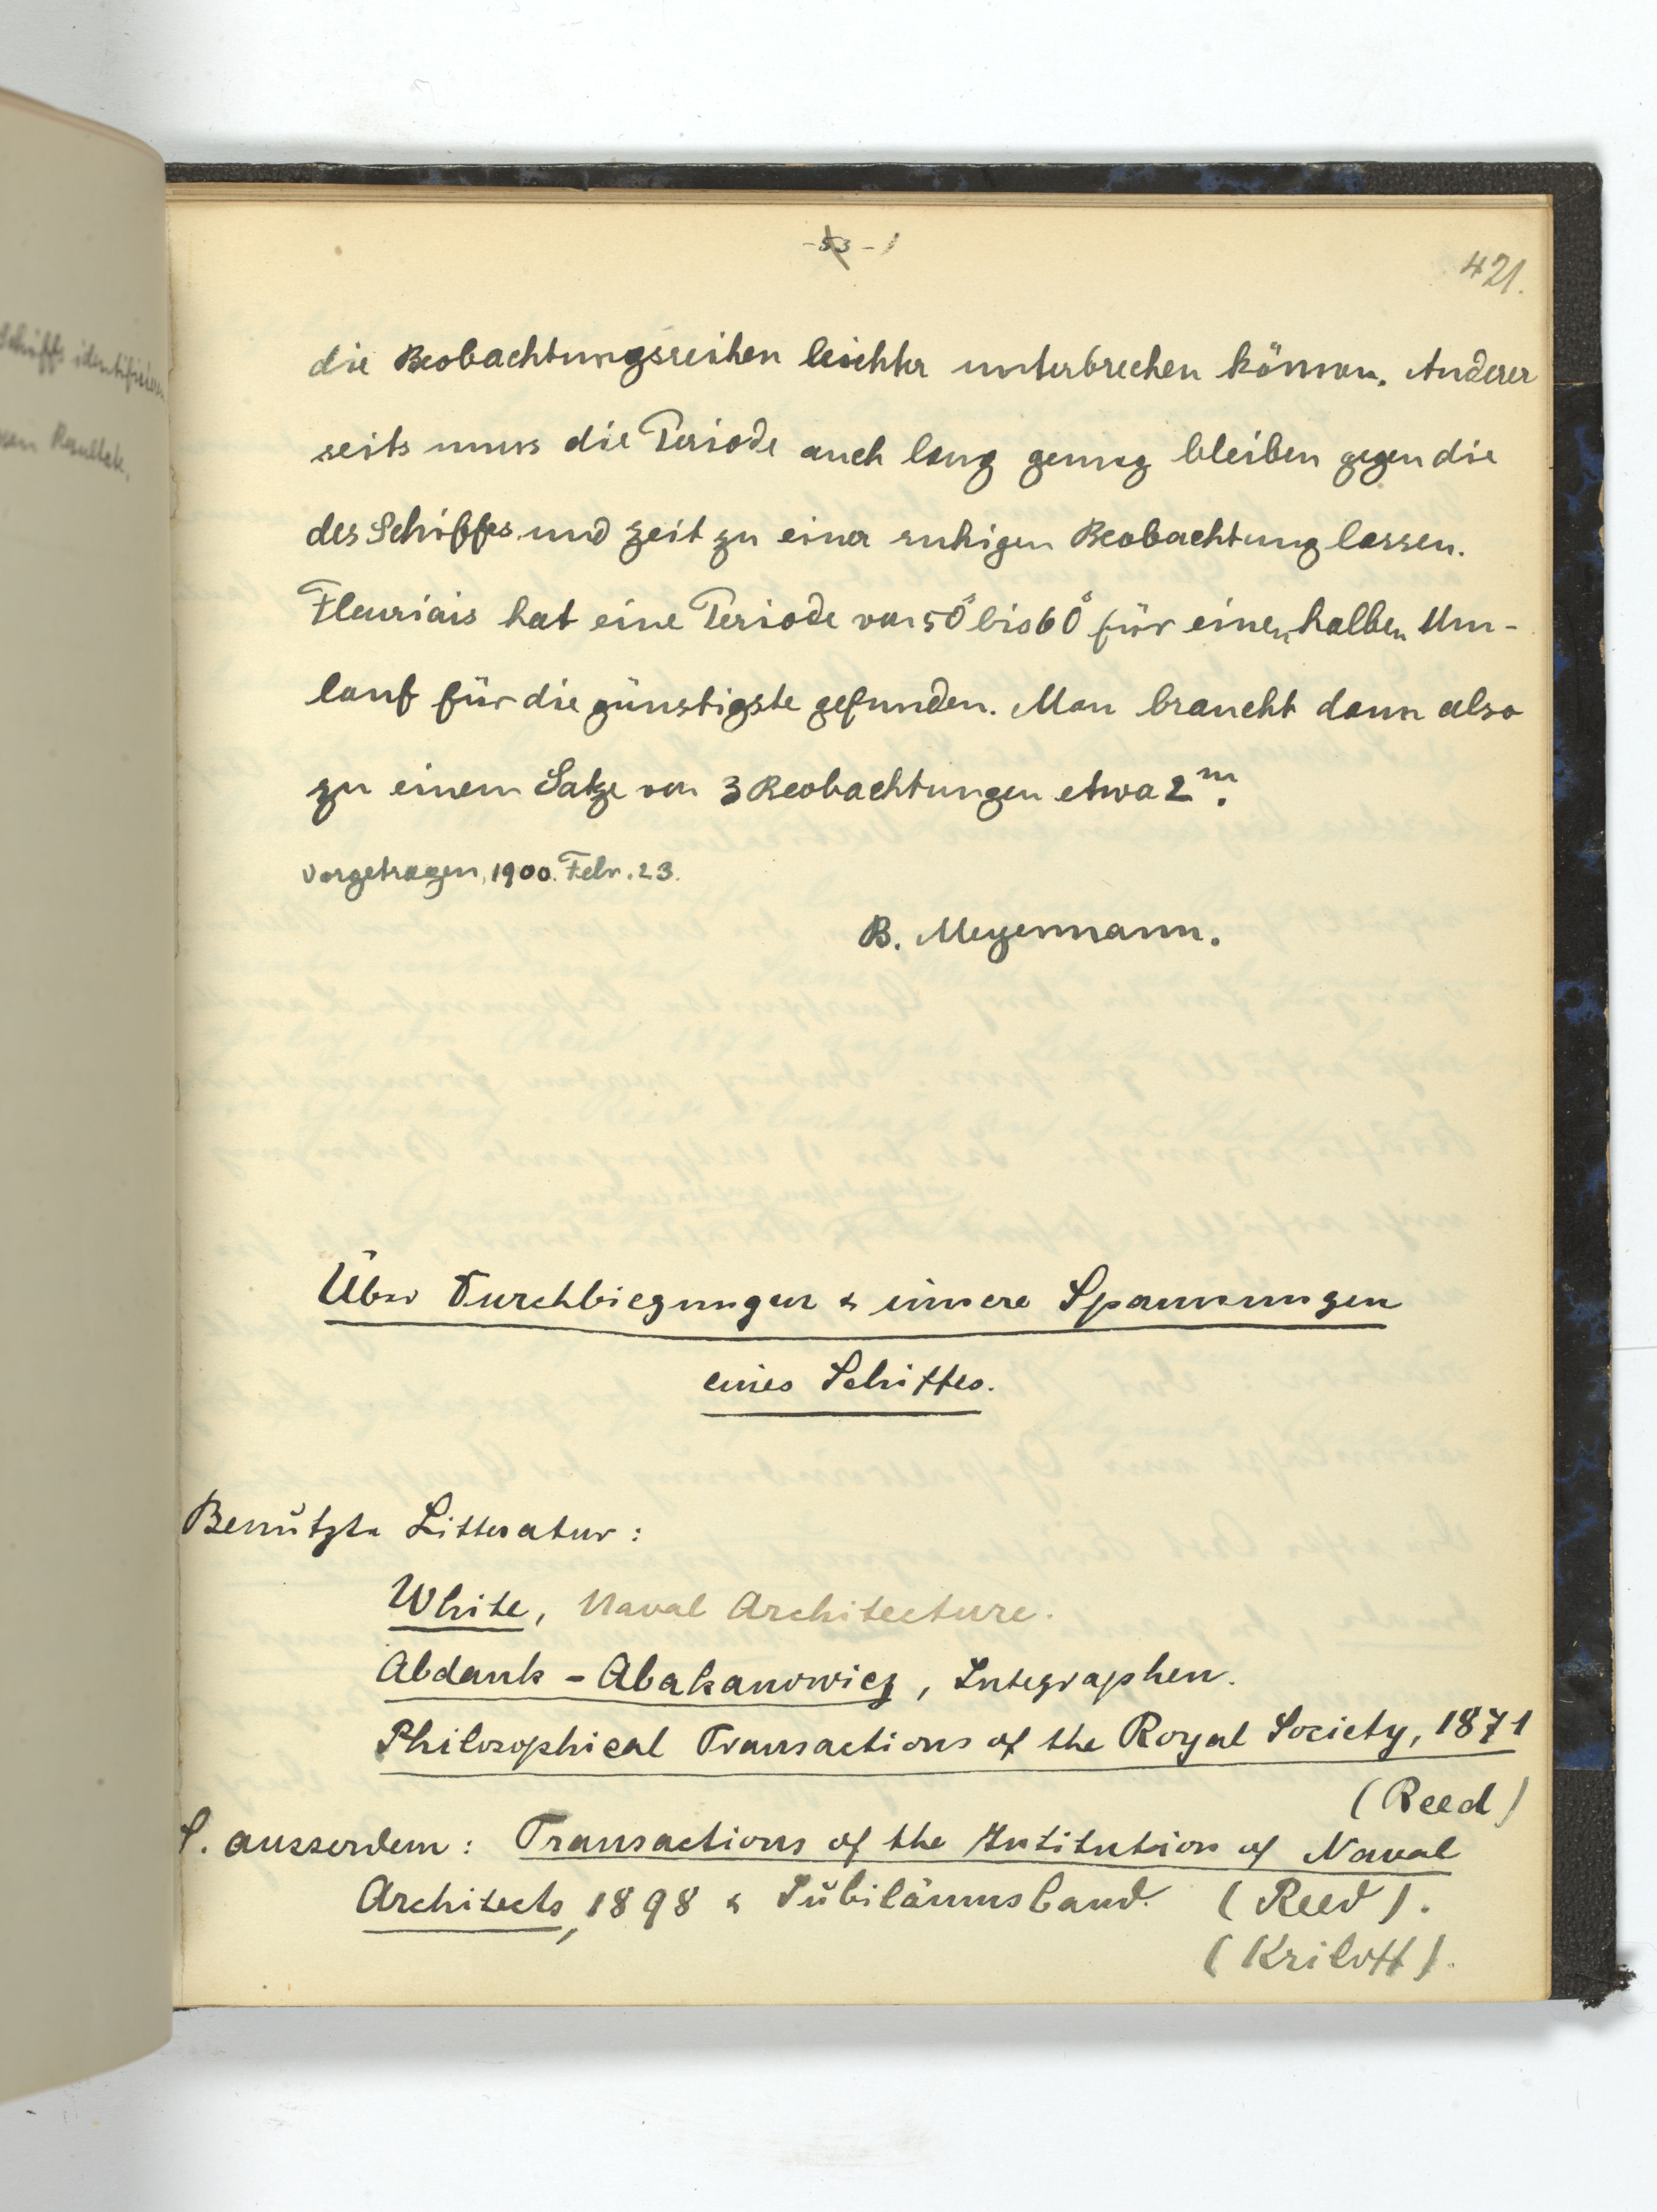 -53-1
421.
Schiffs identifizieren
Resultate,
die Beobachtungsreihen leichter unterbrechen können. Anderer
seits muss die Periode auch lang genug bleiben gegen die
des Schiffes und Zeit zu einer ruhigen Beobachtung lassen.
Fleuriais hat eine Periode von 50ˢ bis 60ˢ für einen halben Um-
lauf für die günstigste gefunden. Man braucht dann also
zu einem Satze von 3 Beobachtungen etwa 2ᵐ.
Vorgetragen, 1900. Febr. 23.
B. Meyermann.
Über Durchbiegungen & innere Spannungen
eines Schiffes.
Benützte Litteratur:
White, Naval Architecture.
Abdank-Abakanowicz, Integraphen.
Philosophical Transactions of the Royal Society, 1871
(Reed)
S. ausserdem: Transactions of the Institution of Naval
Architects, 1898 & Jubiläumsband. (Reed).
(Kriloff).